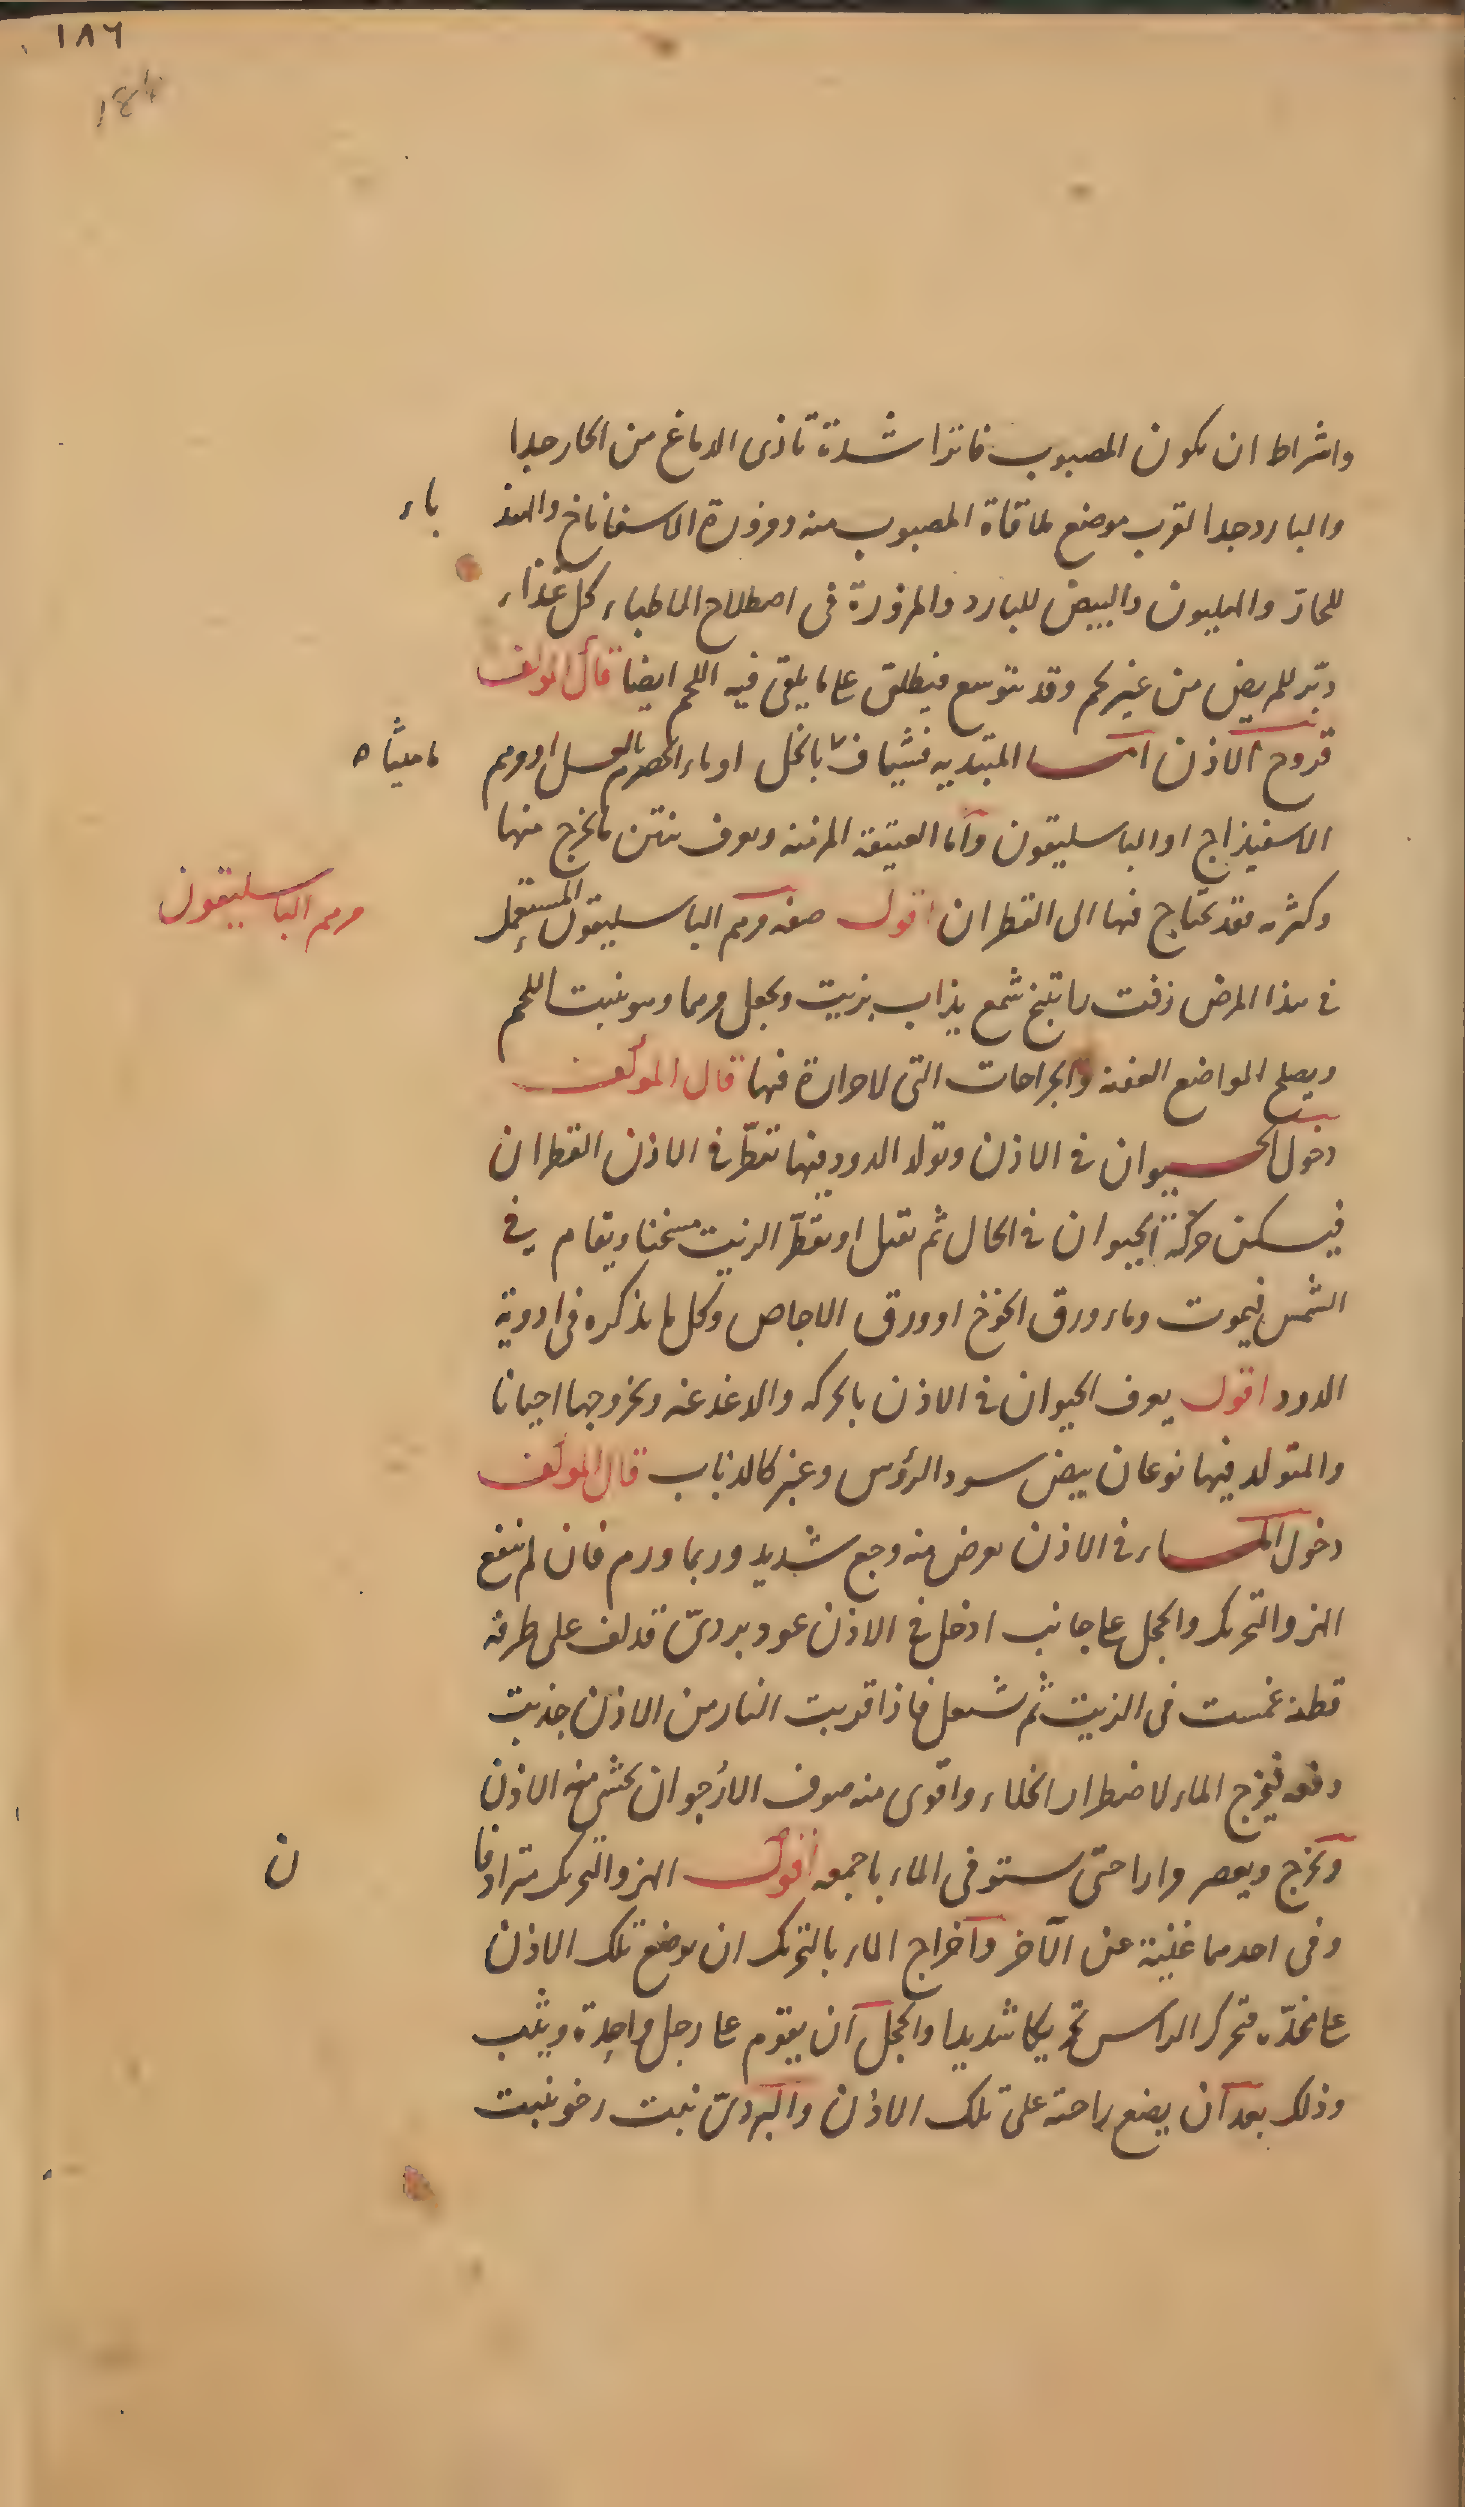 ١٨٦
واشراط ان يكون المصبوب فاترا لشدة تاذى الدماغ من الحار جدا
والبارد جدا لقرب موضع ملاقاة المصبوب منه ومزورة الاسفاناخ والهند باء
للحار والهليون والبيض للبارد والمزورة فى اصطلاح الاطباء كل غذاء
دبّر للمريض من غير لحم وقد يتوسع فيطلق على ما يلقى فيه اللحم ايضا قال المؤلف
قروح الاذن اما المبتديه فشياف ماميثا بالخل او ماء الحصرم بالعسل او مرهم
الاسفيذاج او الباسليقون وأما العتيقة المزمنه ويعرف بنتن ما يخرج منها
وكثرته فقد يحتاج فيها الى القطران اقول صفة مرهم الباسليقون المستعمل
مرهم الباسليقون
فى هذا المرض زفت راتينج شمع يذاب بزيت ويجعل مرهما وهو ينبت اللحم
ويصلح المواضع العفنة والجراحات التى لا حرارة فيها قال المؤلف
دخول الحيوان فى الاذن وتولد الدود فيها تقطّر فى الاذن القطران
فيسكن حركة الحيوان فى الحال ثم يقتل او يقطّر الزيت مسخنا ويقام فى
الشمس فيموت وماء ورق الخوخ او ورق الاجاص وكل ما يذكره فى ادوية
الدود اقول يعرف الحيوان فى الاذن بالحركه والدغدغه وبخروجها احيانا
والمتولد فيها نوعان بيض سود الرؤس وغبر كالذباب قال المؤلف
دخول الماء فى الاذن يعرض منه وجع شديد وربما ورم فان لم ينفع
الهز والتحريك والحجل على جانب ادخل فى الاذن عود بردىّ قد لف على طرفه
قطنة غمست فى الزيت ثم تشعل فاذا قربت النار من الاذن جذبت
دفعه فيخرج الماء لاضطرار الخلاء واقوى منه صوف الارجوان يحشى منه الاذن
ويخرج ويعصر مرارا حتى يستوفى الماء باجمعه اقول الهز والتحريك مترادفان
وفى احدهما غنية عن الآخر وآخراج الماء بالتحريك ان يوضع تلك الاذن
على مخدّه فتحرك الراس تحريكا شديدا والحجل ان يقوم على رجل واحدة ويثب
وذلك بعد أن يضع راحته على تلك الاذن والبردىّ نبت رخو ينبت